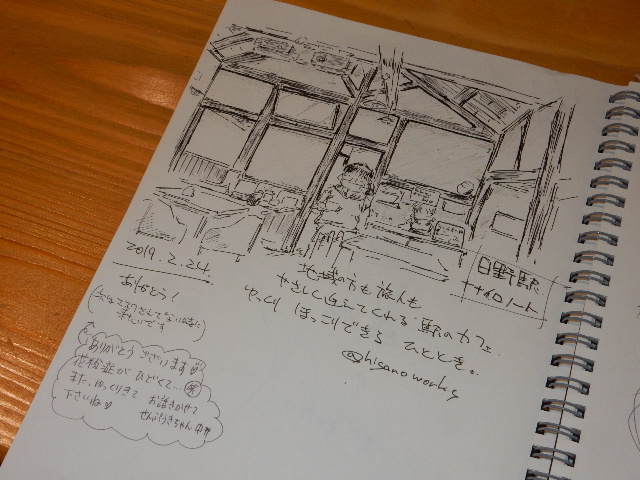 日野駅
ナナイロノート
地域の方も旅人も
やさしく迎えてくれる駅のカフェ。
ゆっくり ほっこりできる ひととき。
@hisanoworks
2019.2.24
ありがとう!
来たいです
ありがとうございます
花粉症が ひどくて… 笑
また、ゆっくりきて お話きかせて
下さいね